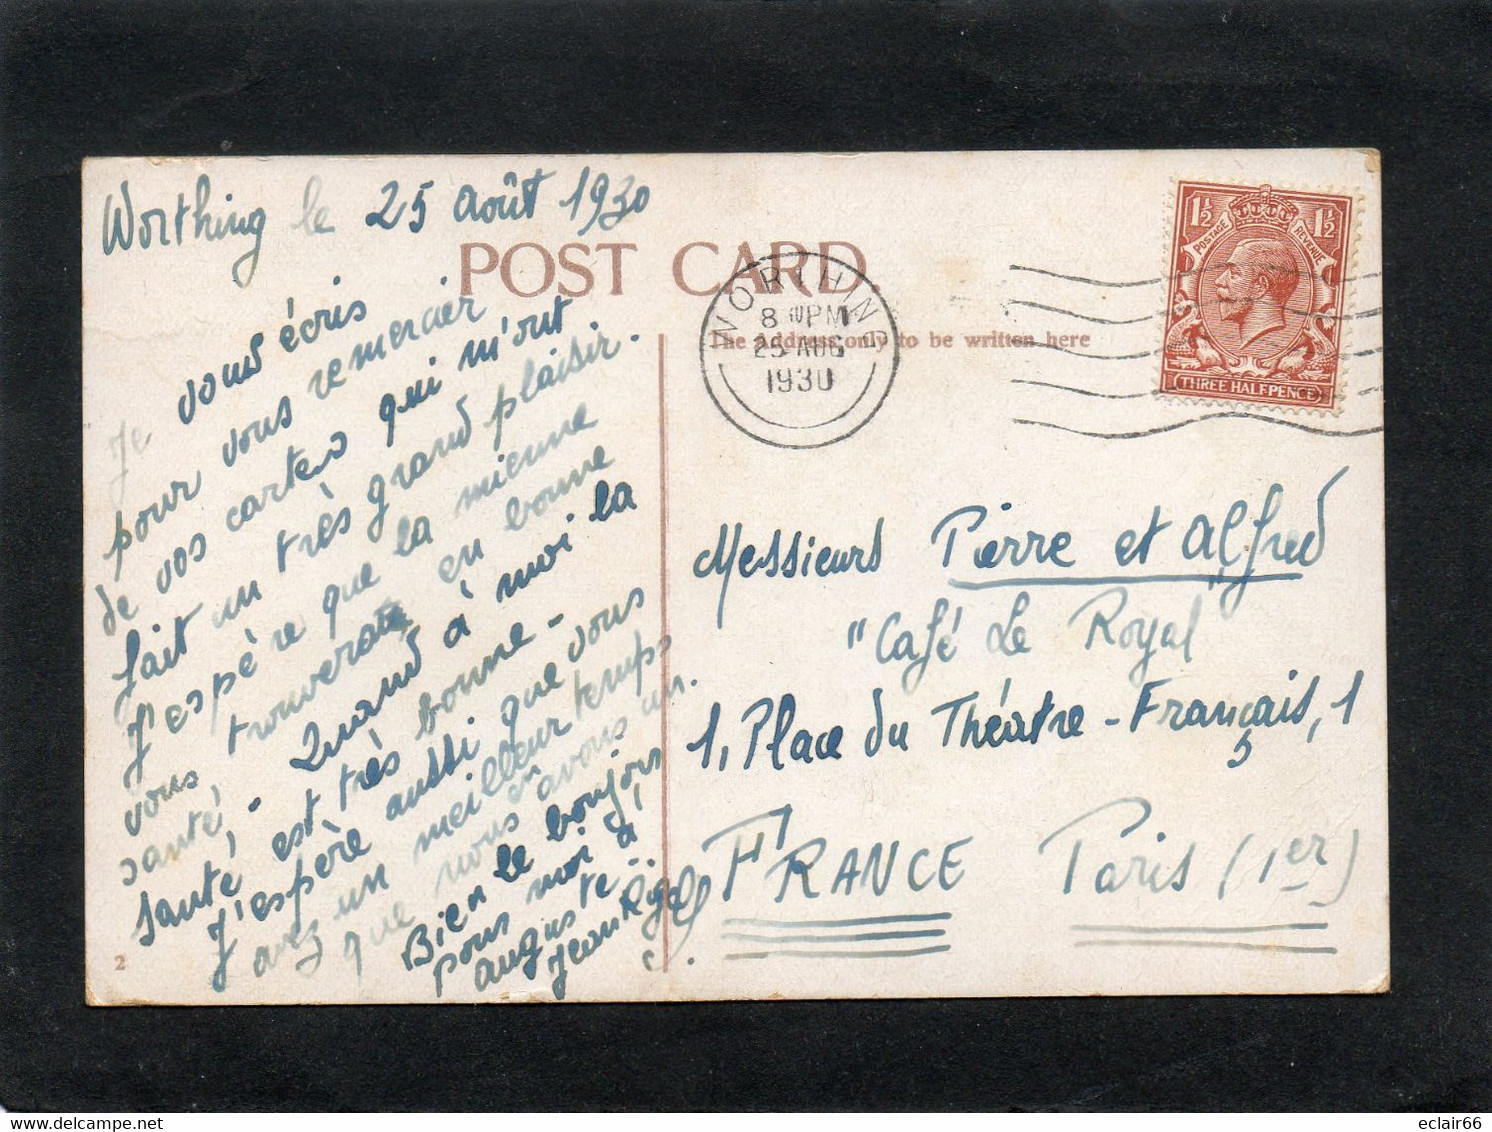 Worthing le 25 Août 1930
POST CARD.
Je vous écris
pour vous remercier
de vos cartes qui m'ont
fait un très grand plaisir.
J'espère que la mienne
vous trouverat en bonne
santé, - Quand à moi la
santé est très bonne -
J'espère aussi que vous
avez un meilleur temps
que nous en avons un.
Bien le bonjour
pour moi à
Auguste..
Jean
2
WORTHING
8 PM
25 AUG
1930
The Address only to be written here
1½ 1½
POSTAGE REVENUE
THREE HALFPENCE
Messieurs Pierre et Alfred
"Café Le Royal"
1, Place du Théatre-Français, 1
FRANCE Paris (1er)
eclair66